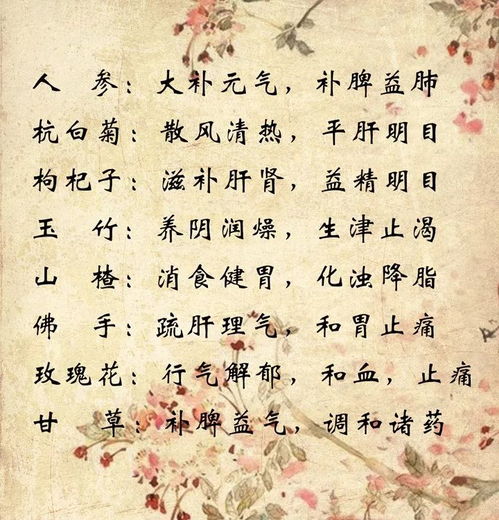 人参：大补元气，补脾益肺
杭白菊：散风清热，平肝明目
枸杞子：滋补肝肾，益精明目
玉竹：养阴润燥，生津止渴
山楂：消食健胃，化浊降脂
佛手：疏肝理气，和胃止痛
玫瑰花：行气解郁，和血，止痛
甘草：补脾益气，调和诸药